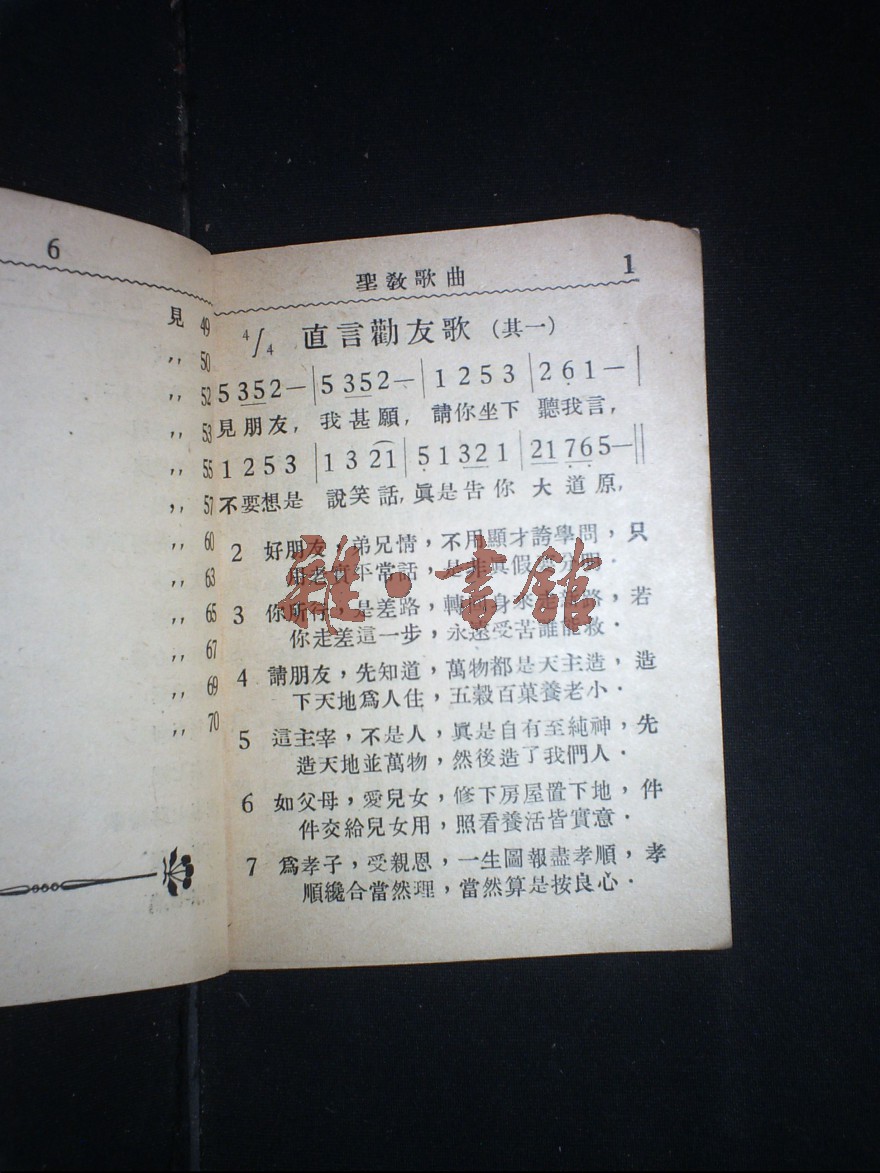 6
見 49
,, 50
,, 52
,, 53
,, 55
,, 57
,, 60
,, 63
,, 65
,, 67
,, 69
,, 70
聖教歌曲 1
4/4 直言勸友歌 (其一)
5 352— | 5 352— | 1 2 5 3 | 2 6 1 — |
見朋友, 我甚願, 請你坐下 聽我言,
1 2 5 3 | 1 3 21 | 5 1 32 1 | 21 76 5— ||
不要想是 說笑話, 眞是告你 大道原,
2 好朋友，弟兄情，不用顯才誇學問，只
用老實平常話，是非眞假 分明．
3 你所行，是差路，轉 身求 路，若
你走差這一步，永遠受苦誰能救．
4 請朋友，先知道，萬物都是天主造，造
下天地爲人住，五穀百菓養老小．
5 這主宰，不是人，眞是自有至純神，先
造天地並萬物，然後造了我們人．
6 如父母，愛兒女，修下房屋置下地，件
件交給兒女用，照看養活皆實意．
7 爲孝子，受親恩，一生圖報盡孝順，孝
順纔合當然理，當然算是按良心．
雜·書館